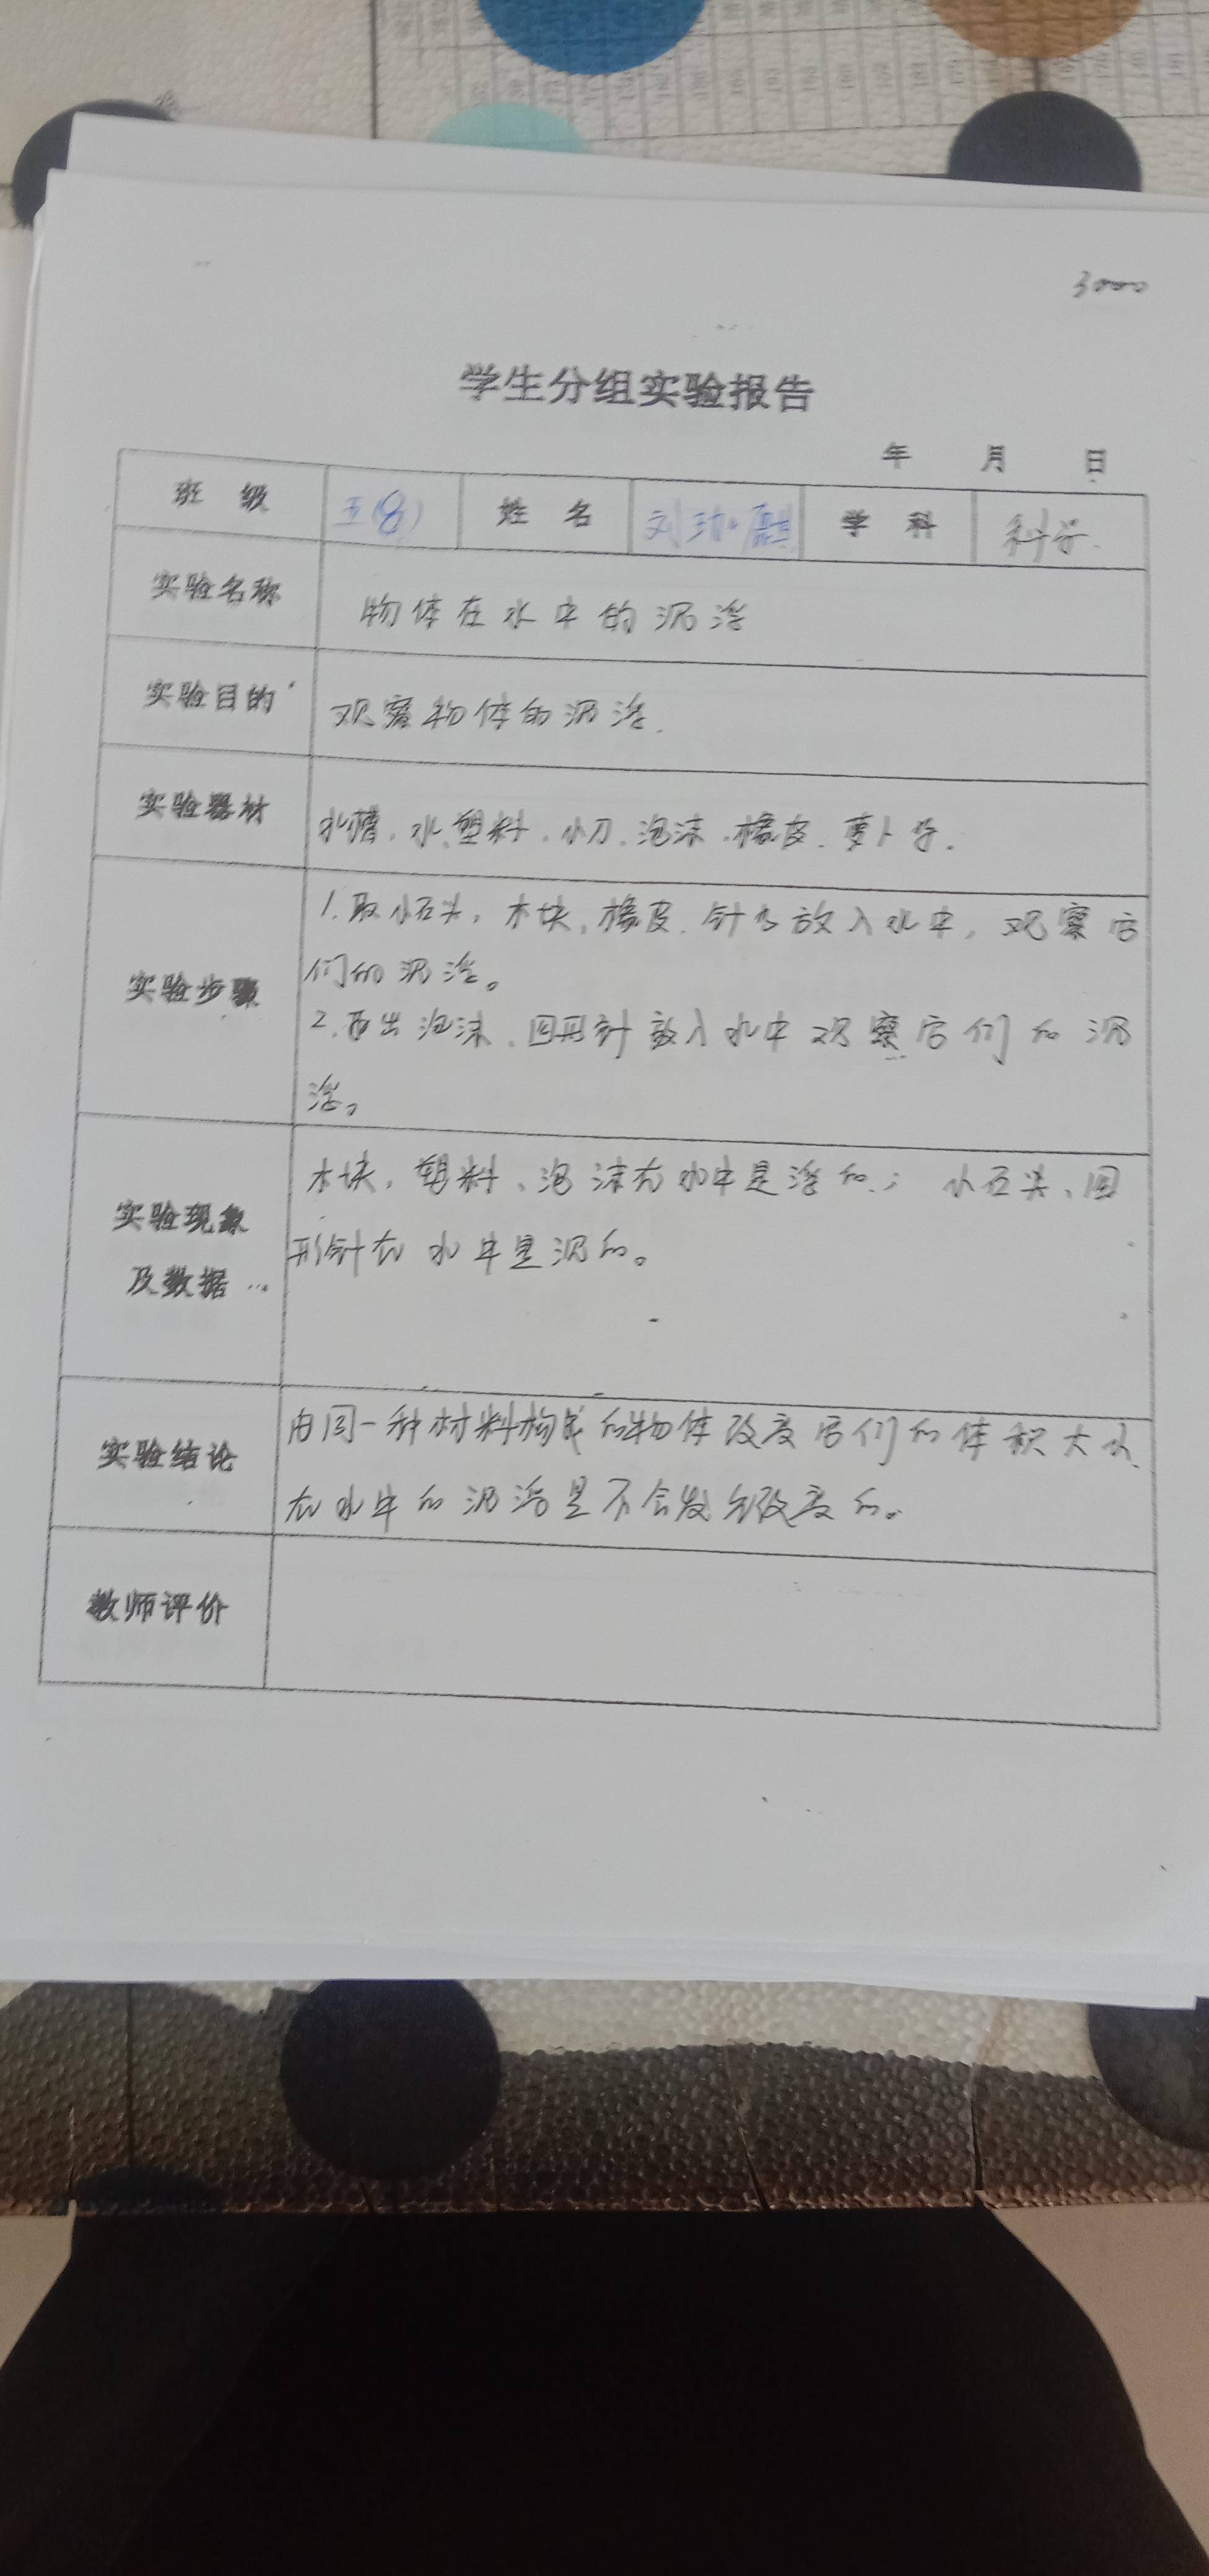 3000
学生分组实验报告
年 月 日
班 级 五(8) 姓 名 刘 学 科 科学.
实验名称 物体在水中的沉浮
实验目的 观察物体的沉浮.
实验器材 水槽、水、塑料、小刀、泡沫、橡皮、萝卜等.
实验步骤
1.取小石头,木块,橡皮、针等放入水中,观察它
们的沉浮。
2.取出泡沫、回形针放入水中观察它们的沉
浮。
实验现象
及数据
木块,塑料、泡沫在水中是浮的;小石头、回
形针在水中是沉的。
实验结论
由同一种材料构成的物体改变它们的体积大小,
在水中的沉浮是不会发生改变的。
教师评价